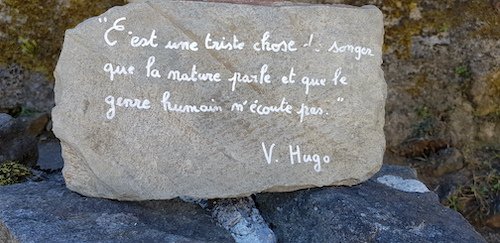 "C'est une triste chose de songer
que la nature parle et que le
genre humain n'écoute pas."
V. Hugo